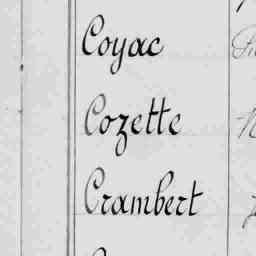 Coyac
Cozette
Crambert